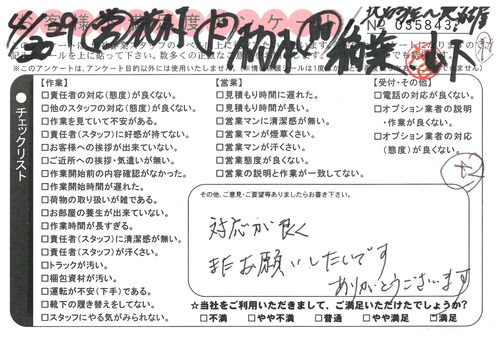 お客様満足度アンケート
No 035843
4/29 30
※このアンケートは、アンケート目的以外には使用いたしません。
チェックリスト
【作業】
□責任者の対応(態度)が良くない。
□他のスタッフの対応(態度)が良くない。
□作業を見ていて不安がある。
□責任者(スタッフ)に好感が持てない。
□お客様への挨拶が出来ていない。
□ご近所への挨拶・気遣いが無い。
□作業開始前の内容確認がなかった。
□作業開始時間が遅れた。
□荷物の取り扱いが雑である。
□お部屋の養生が出来ていない。
□作業時間が長すぎる。
□責任者(スタッフ)に清潔感が無い。
□責任者(スタッフ)が汗くさい。
□トラックが汚い。
□梱包資材が汚い。
□運転が不安(下手)である。
□靴下の履き替えをしてない。
□スタッフにやる気がみられない。
【営業】
□見積もり時間に遅れた。
□見積もり時間が長い。
□営業マンに清潔感が無い。
□営業マンが煙草くさい。
□営業マンが汗くさい。
□営業態度が良くない。
□営業の説明と作業が一致してない。
【受付・その他】
□電話の対応が良くない。
□オプション業者の説明
・作業が良くない。
□オプション業者の対応
(態度)が良くない。
その他、ご意見・ご要望等ありましたらお書き下さい。
対応が良く
またお願いしたいです
ありがとうございます
☆当社をご利用いただきまして、ご満足いただけたでしょうか?
□不満 □やや不満 □普通 □やや満足 ☑満足